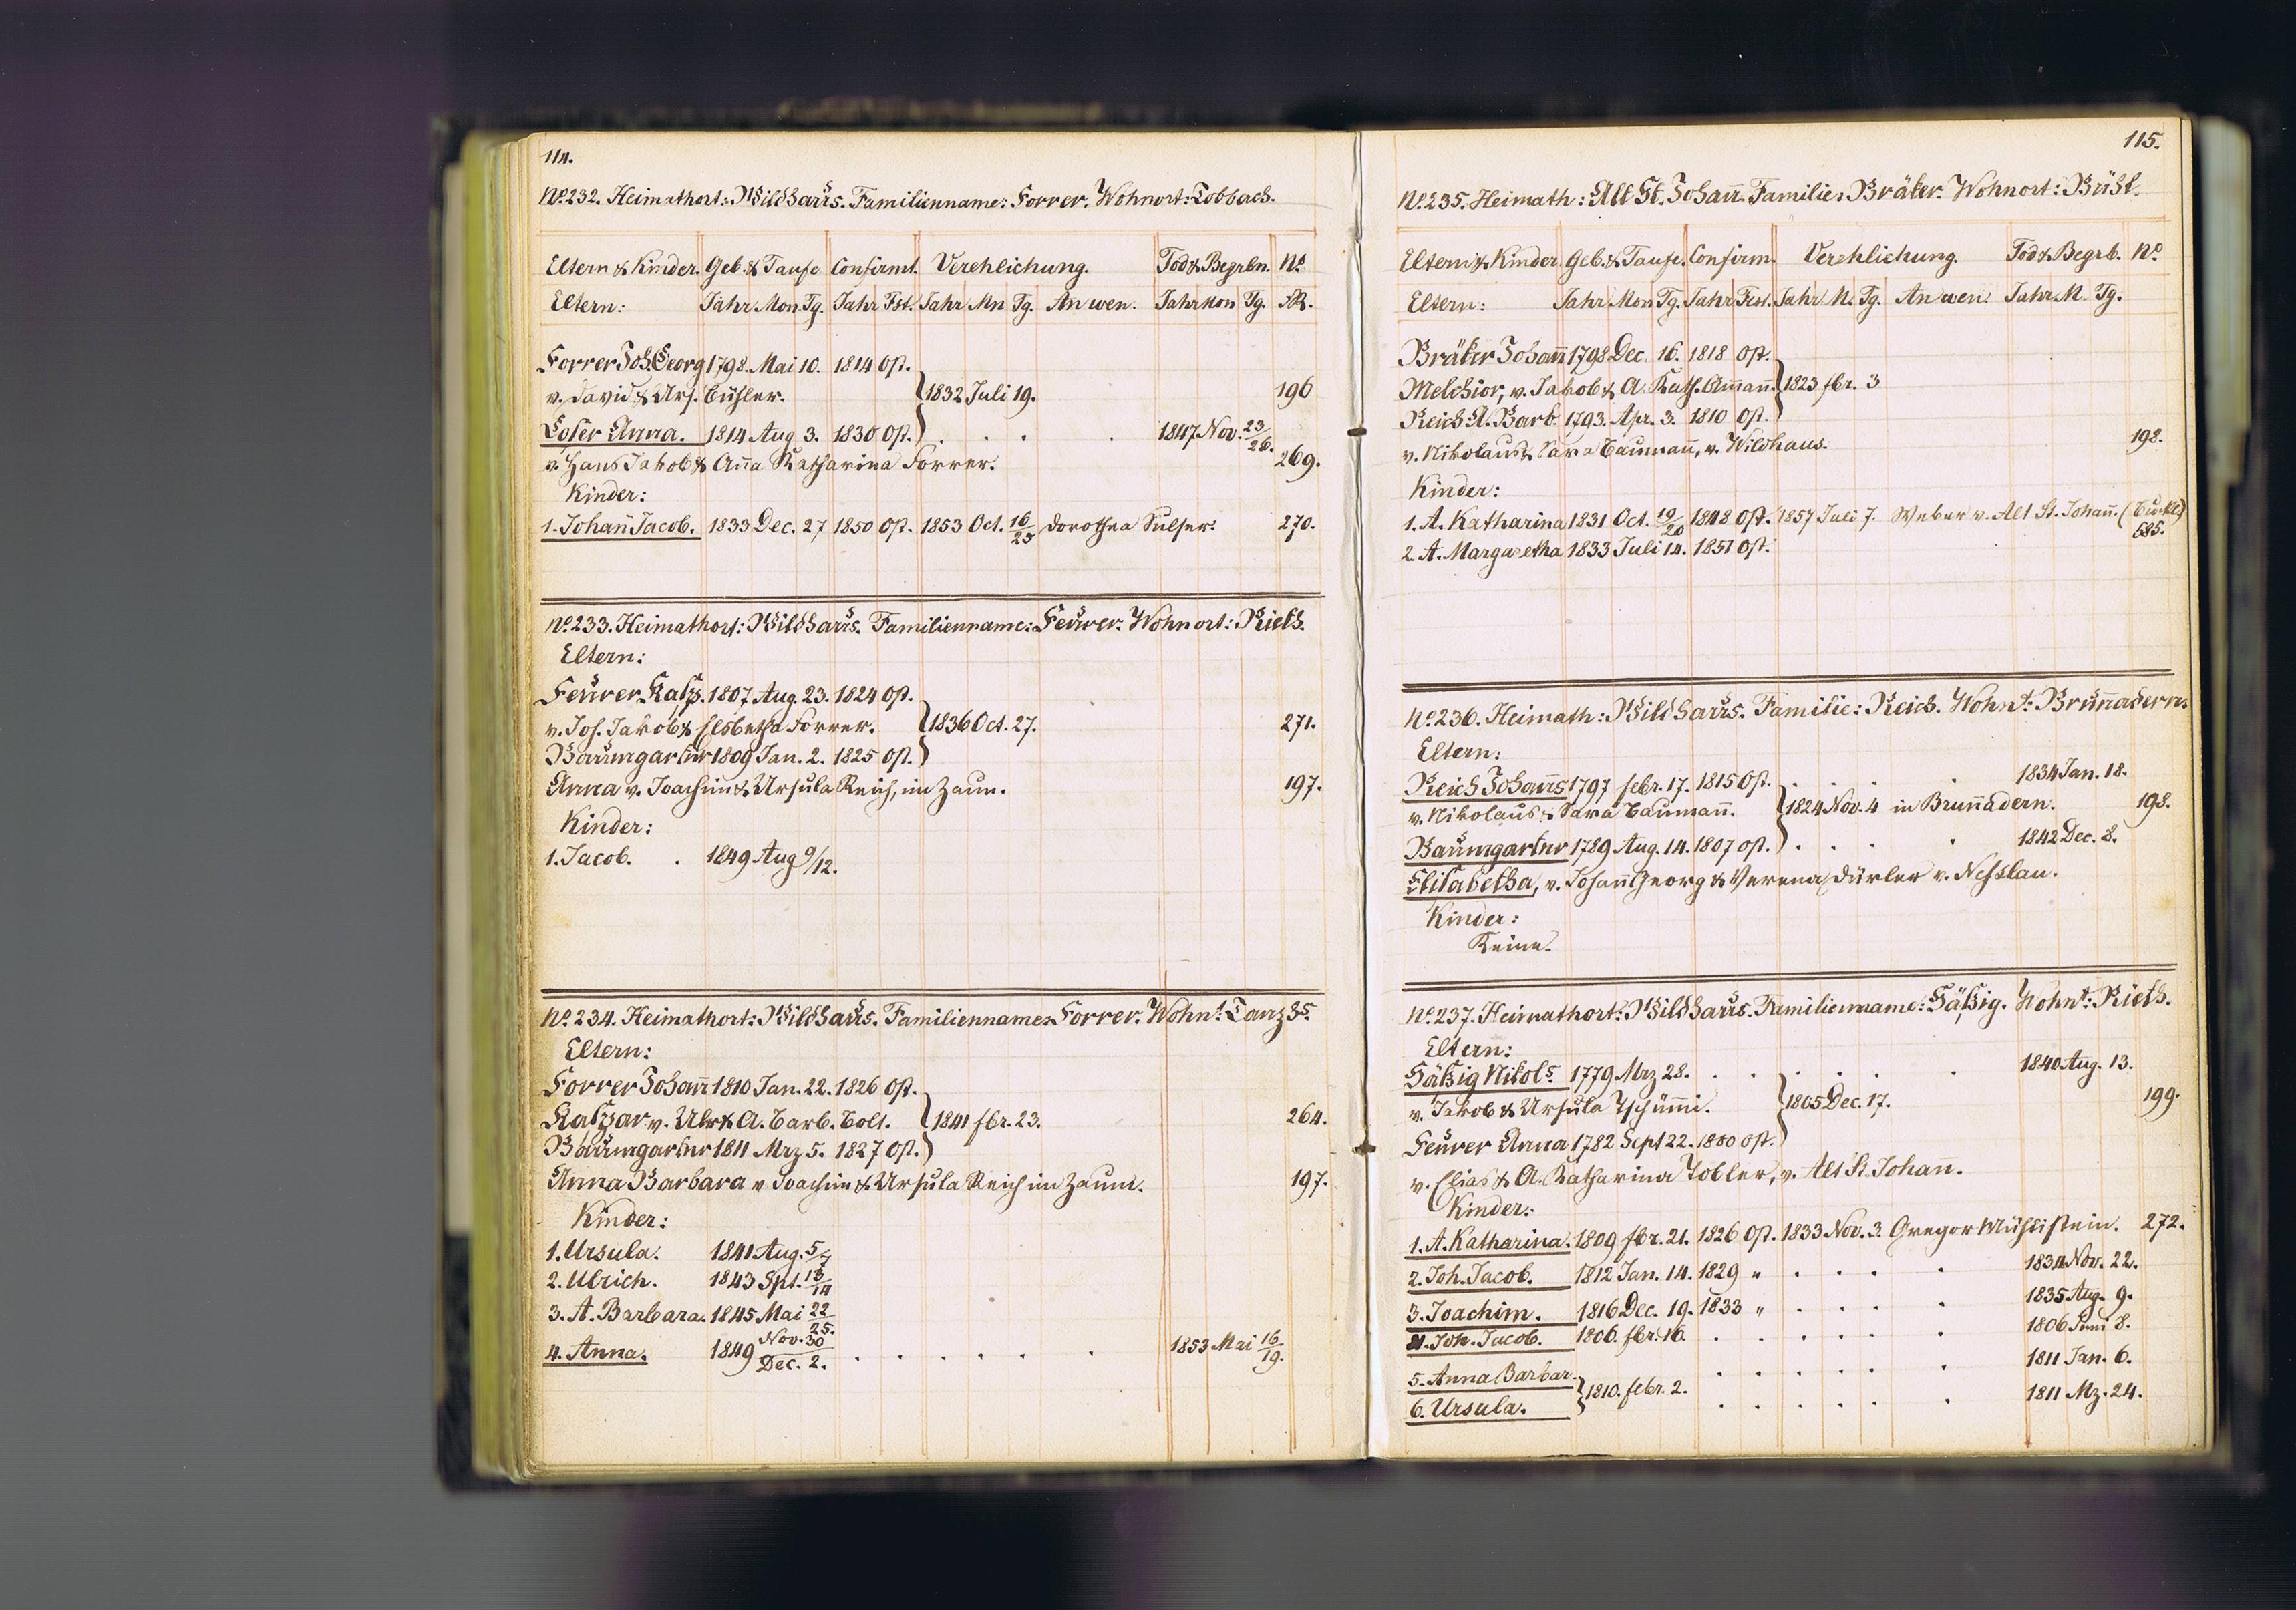 114.
No. 232. Heimathort: Wildhaus. Familienname: Forrer. Wohnort: Lobbach.
Eltern & Kinder. Geb. & Taufe Confirmt. Verehlichung. Tod & Begrbn. No.
Eltern: Jahr Mon. Tg. Jahr Fst. Jahr Mn Tg. An wen. Jahr Mon Tg. R.
Forrer Joh. Georg 1798. Mai 10. 1814 Ost.
v. David & Urs. Bühler. } 1832 Juli 19. 196
Loser Anna. 1814 Aug 3. 1830 Ost. . . . . 1847 Nov. 23/26.
v. Hans Jakob & Aña Katharina Forrer. 269.
Kinder:
1. Johañ Jacob. 1833 Dec. 27 1850 Ost. 1853 Oct. 16/25 Dorothea Sulser. 270.
No. 233. Heimathort: Wildhaus. Familienname: Feurer. Wohnort: Rieth.
Eltern:
Feurer Kasp. 1807 Aug. 23. 1824 Ost.
v. Jos. Jakob & Elsbetha Forrer. } 1836 Oct. 27. 271.
Baumgartner 1809 Jan. 2. 1825 Ost.
Anna v. Joachim & Ursula Reich, im Zaun. 197.
Kinder:
1. Jacob. . 1849 Aug 9/12.
No. 234. Heimathort: Wildhaus. Familienname: Forrer. Wohnt. Lanzhs.
Eltern:
Forrer Johañ 1810 Jan. 22. 1826 Ost.
Kaspar v. Ulr. & A. Barb. Bolt. } 1841 fbr. 23. 264.
Baumgartner 1811 Mrz 5. 1827 Ost.
Anna Barbara v Joachim & Ursula Reich im Zaun. 197.
Kinder:
1. Ursula. 1841 Aug. 5/7
2. Ulrich. 1843 Spt. 13/14
3. A. Barbara. 1845 Mai 22/25.
4. Anna. 1849 Nov. 30/Dec. 2. . . . . . . 1853 Mai 16/19.
115.
No. 235. Heimath: Alt St. Johañ. Familie: Bräker. Wohnort: Bühl.
Eltern & Kinder Geb. & Taufe. Confirm. Verehlichung. Tod & Begrb. No.
Eltern: Jahr Mon Tg. Jahr Fest. Jahr M. Tg. An wen. Jahr M. Tg.
Bräker Johañ 1798 Dec. 16. 1818 Ost.
Melchior, v. Jakob & A. Kath. Amañ. } 1823 fbr. 3
Reich A. Barb. 1793. Apr. 3. 1810 Ost.
v. Nikolaus & Sara Baumañ, v. Wildhaus. 198.
Kinder:
1. A. Katharina 1831 Oct. 19/20 1848 Ost. 1857 Juli 7. Weber v. Alt St. Johañ.
585.
2. A. Margaretha 1833 Juli 14. 1851 Ost.
No. 236. Heimath: Wildhaus. Familie: Reich. Wohnt: Bruñadern.
Eltern:
Reich Johañs 1797 febr. 17. 1815 Ost. . . . . 1834 Jan. 18.
v. Nikolaus & Sara Baumañ. } 1824 Nov. 4 in Bruñadern. 198.
Baumgartner 1789 Aug. 14. 1807 Ost. . . . . 1842 Dec. 8.
Elisabetha, v. Johañ Georg & Verena Dürler v. Nesslau.
Kinder:
Keine.
No. 237. Heimathort: Wildhaus. Familienname: Häßig. Wohnt: Rieth.
Eltern:
Häßig Nikols. 1779 Mrz 28. . . . . . . 1840 Aug. 13.
v. Jakob & Ursula Tschümi. } 1805 Dec. 17. 199.
Feurer Anna 1782 Sept 22. 1800 Ost.
v. Elias & A. Katharina Tobler, v. Alt St. Johañ.
Kinder:
1. A. Katharina. 1809 fbr. 21. 1826 Ost. 1833 Nov. 3. Gregor Mühlistein. 272.
2. Joh. Jacob. 1812 Jan. 14. 1829 " . . . . . 1834 Nov. 22.
3. Joachim. 1816 Dec. 19. 1833 " . . . . . 1835 Aug. 9.
4. Joh. Jacob. 1806. fbr. 16. . . . . . . . 1806 Juni 8.
5. Anna Barbar. . . . . . . 1811 Jan. 6.
} 1810. febr. 2.
6. Ursula. . . . . . . 1811 Mz. 24.